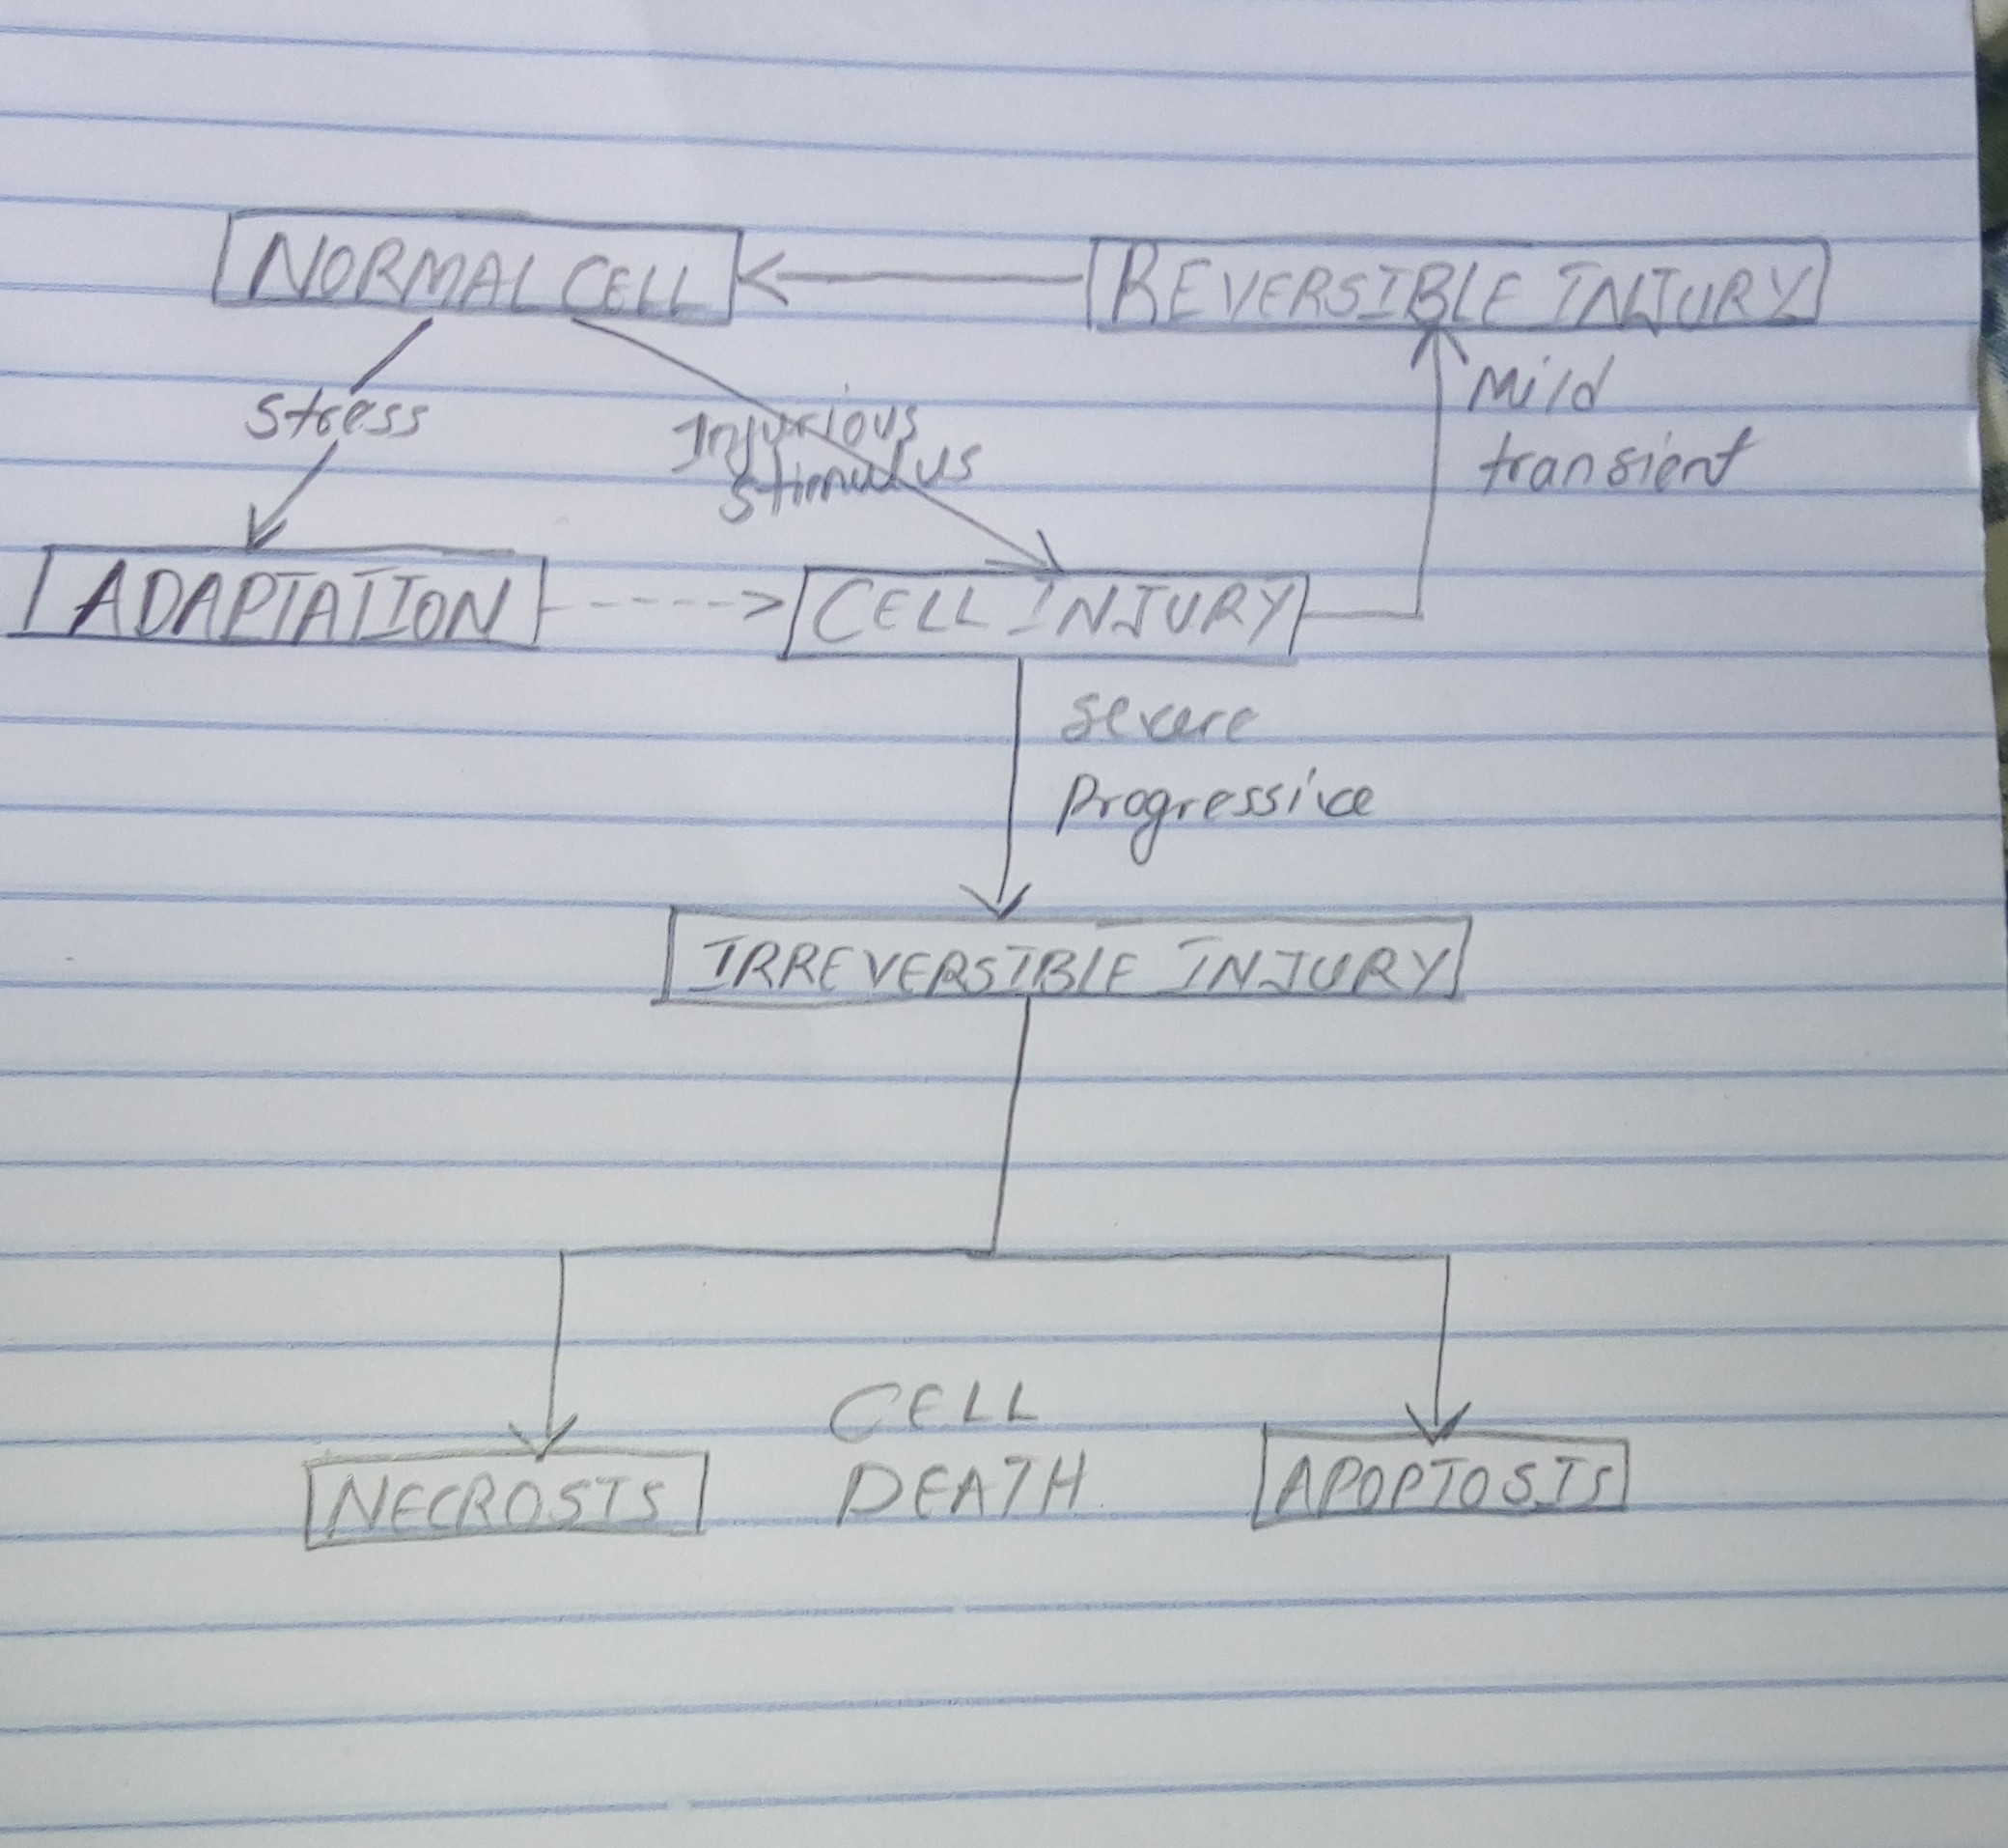 NORMAL CELL
REVERSIBLE INJURY
Stress
Injurious
Stimulus
Mild
transient
ADAPTATION
CELL INJURY
Severe
Progressive
IRREVERSIBLE INJURY
CELL
DEATH
NECROSIS
APOPTOSIS